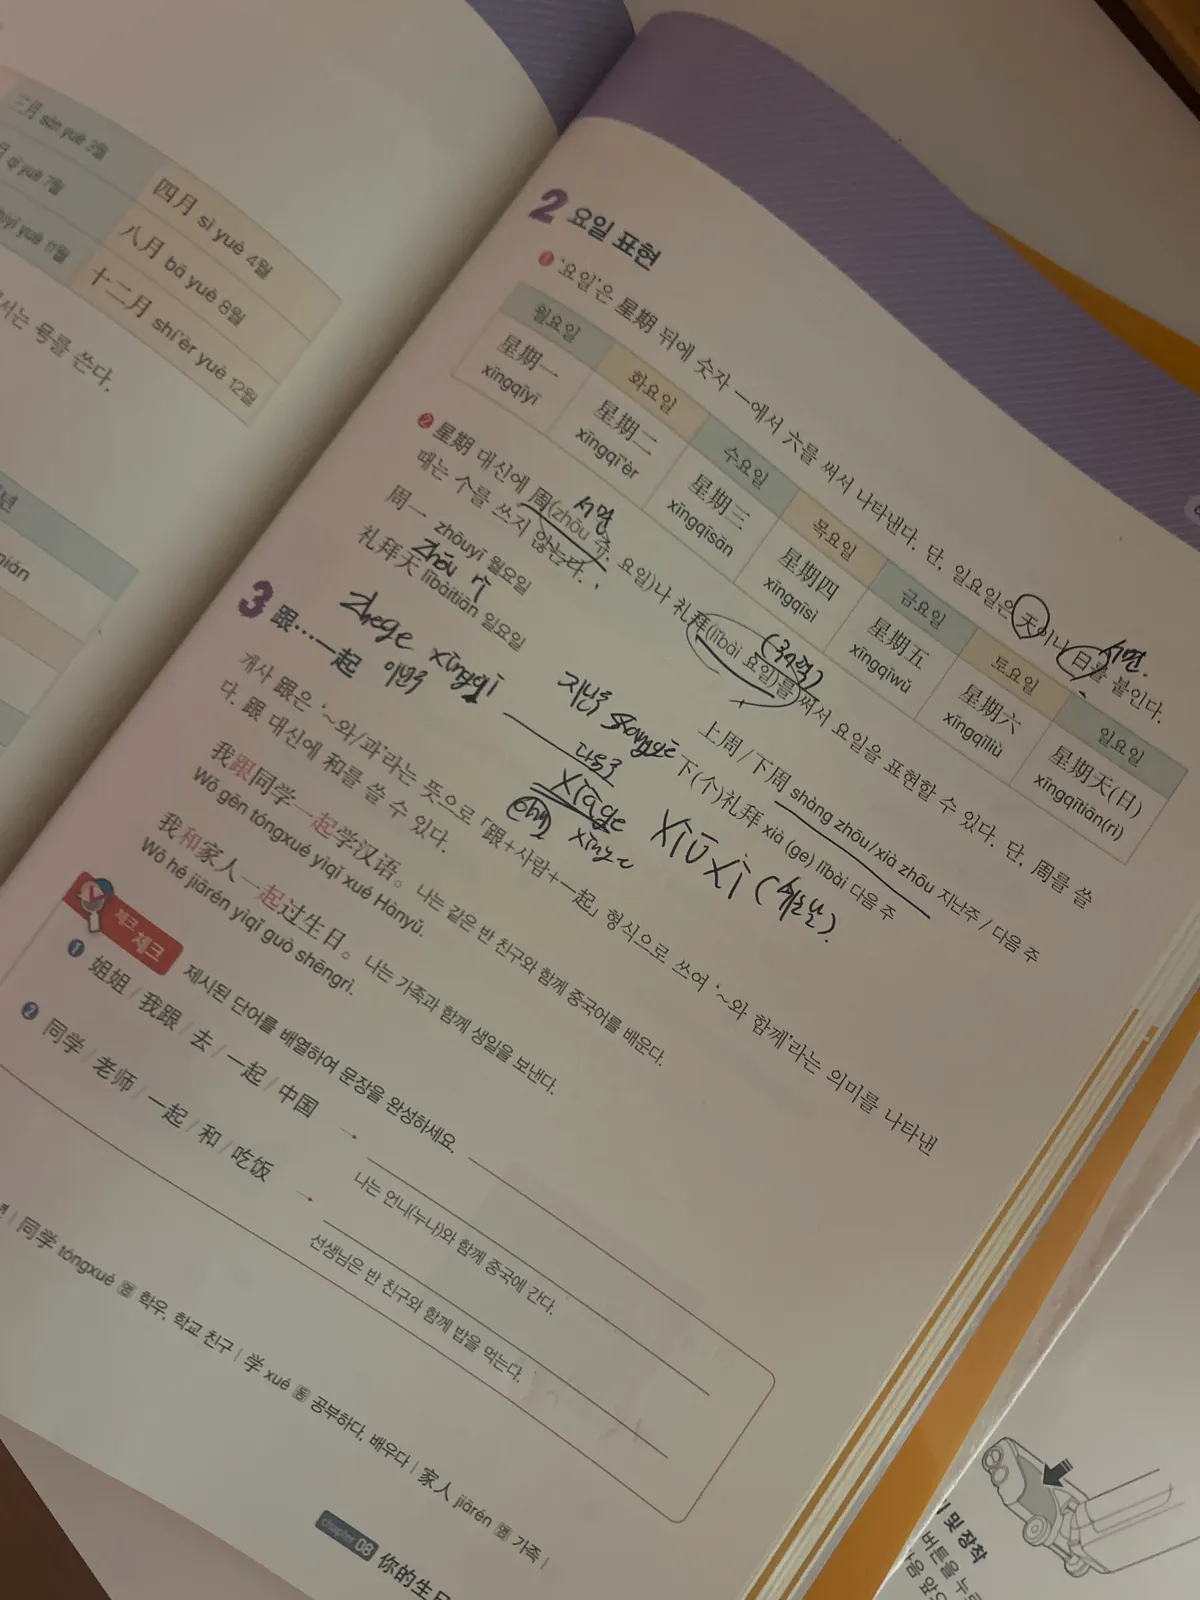 三月 sān yuè 3월
四月 sì yuè 4월
qī yuè 7월
八月 bā yuè 8월
yuè 11월
十二月 shí'èr yuè 12월
서는 号를 쓴다.
년
nián
2 요일 표현
1 '요일'은 星期 뒤에 숫자 一에서 六를 써서 나타낸다. 단, 일요일은 天이나 日을 붙인다.
서면.
월요일 화요일 수요일 목요일 금요일 토요일 일요일
星期一 星期二 星期三 星期四 星期五 星期六 星期天(日)
xīngqīyī xīngqī'èr xīngqīsān xīngqīsì xīngqīwǔ xīngqīliù xīngqītiān(rì)
서면
(구어적)
2 星期 대신에 周(zhōu 주, 요일)나 礼拜(lǐbài 요일)를 써서 요일을 표현할 수 있다. 단, 周를 쓸
때는 个를 쓰지 않는다.
周一 zhōuyī 월요일
上周/下周 shàng zhōu/xià zhōu 지난주 / 다음 주
zhōu rì
礼拜天 lǐbàitiān 일요일
下(个)礼拜 xià (ge) lǐbài 다음 주
zhege xīngqī
이번주
지난주 shangge
다음주
xiàge
xiūxi (쉬는날).
3 跟……一起
개사 跟은 '~와/과'라는 뜻으로 「跟+사람+一起」 형식으로 쓰여 '~와 함께'라는 의미를 나타낸
다. 跟 대신에 和를 쓸 수 있다.
我跟同学一起学汉语。 나는 같은 반 친구와 함께 중국어를 배운다.
Wǒ gēn tóngxué yìqǐ xué Hànyǔ.
我和家人一起过生日。 나는 가족과 함께 생일을 보낸다.
Wǒ hé jiārén yìqǐ guò shēngrì.
체크 체크 제시된 단어를 배열하여 문장을 완성하세요.
1 姐姐 / 我跟 / 去 / 一起 / 中国 →
나는 언니(누나)와 함께 중국에 간다.
2 同学 / 老师 / 一起 / 和 / 吃饭 →
선생님은 반 친구와 함께 밥을 먹는다.
| 同学 tóngxué 명 학우, 학교 친구 | 学 xué 동 공부하다, 배우다 | 家人 jiārén 명 가족 |
chapter 08 你的生日
및 장착
버튼을 누르